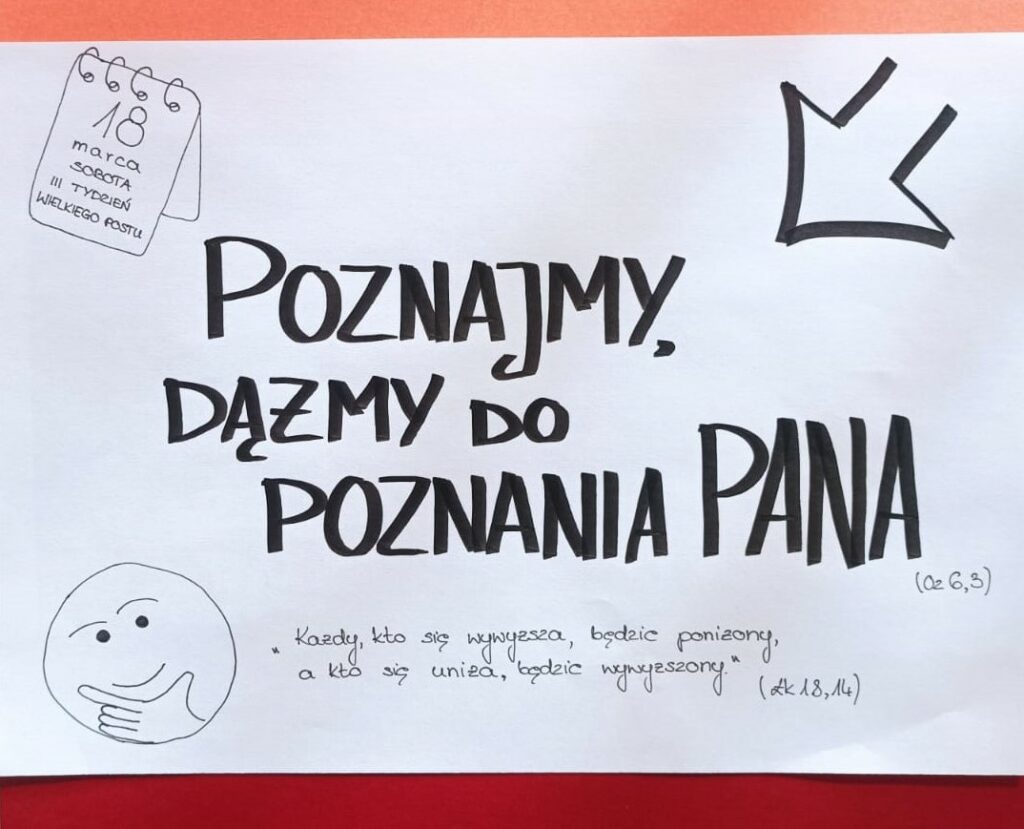 18
marca
SOBOTA
III TYDZIEŃ
WIELKIEGO POSTU
POZNAJMY,
DĄŻMY DO
POZNANIA PANA
(Oz 6,3)
"Każdy, kto się wywyższa, będzie poniżony,
a kto się uniża, będzie wywyższony."
(Łk 18,14)